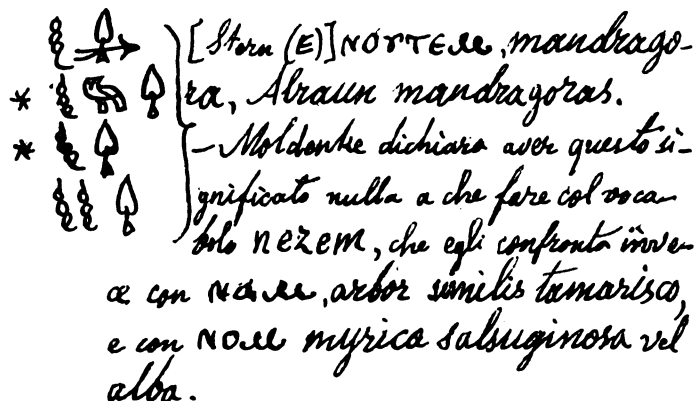 [Stern (E)] ⲚⲞⲨⲦⲈⲘ, mandrago-
ra, Alraun mandragoras.
— Moldenke dichiara aver questo si-
gnificato nulla a che fare col voca-
bolo nezem, che egli confronta inve-
ce con ⲚⲀⲘ, arbor similis tamarisco,
e con ⲚⲞⲘ myrica salsuginosa vel
alba.